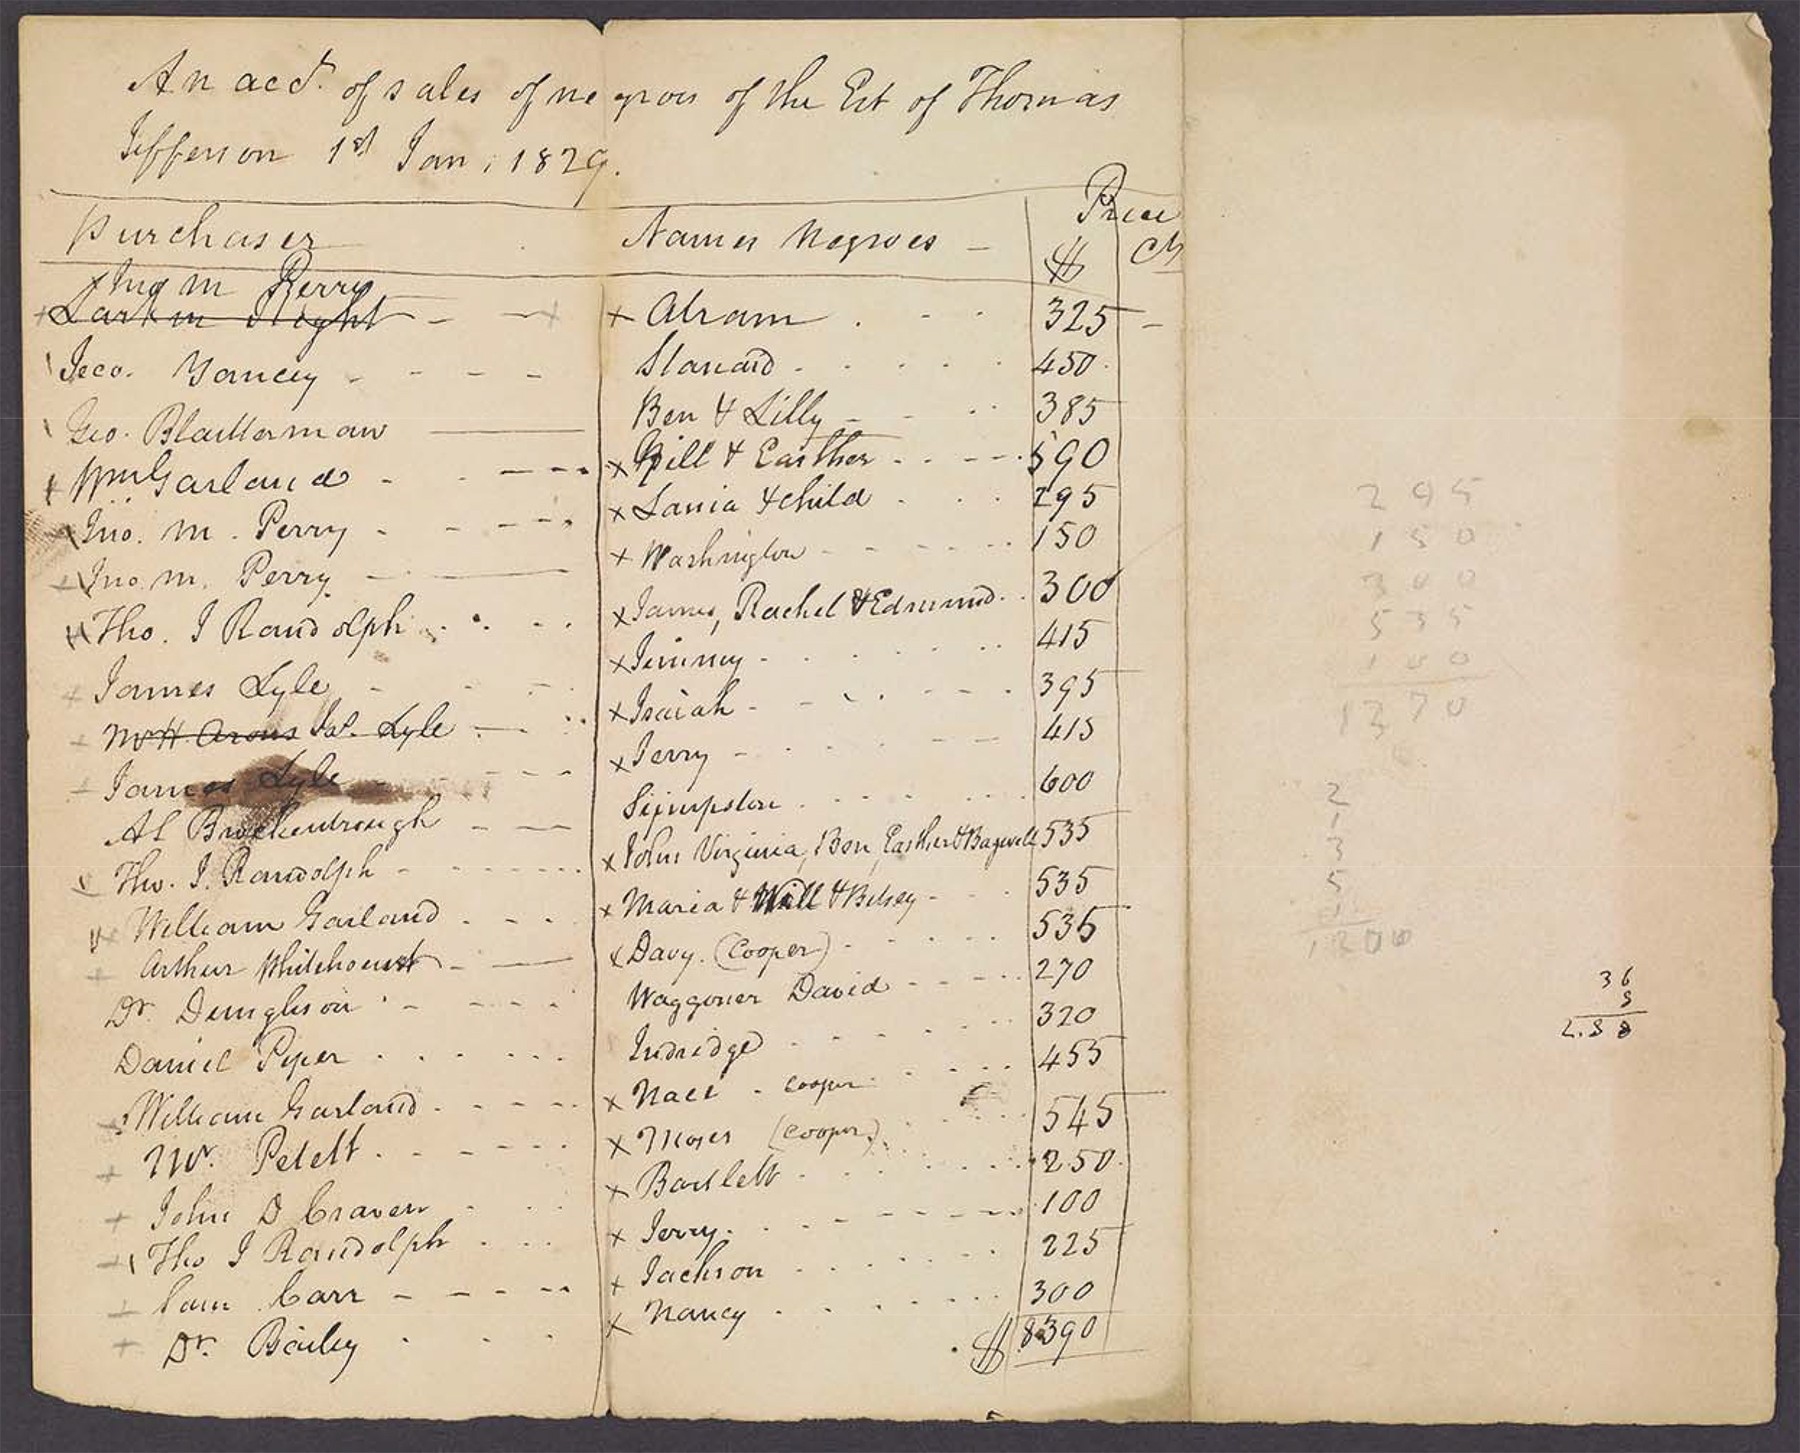 An acct. of sales of negroes of the Est of Thomas
Jefferson 1st Jan, 1829.
Purchaser Names Negroes – Price
$ Cts
Jno M Perry
Abram 325 –
Jeco. Yancey Stanard 450
Geo. Blatterman Ben & Lilly 385
Wm Garland Gill & Easther 590
Jno. M. Perry Lania & child 295
Jno. M. Perry Washington 150
Tho. J Randolph James, Rachel & Edmund 300
James Lyle Jimmy 415
Jas. Lyle Isaiah 395
James Lyle Jerry 415
Al Brockenbrough Simpston 600
Tho. J. Randolph John Virginia, Ben, Easther & Bagwell 535
William Garland Maria & Will & Betsey 535
Arthur Whitehourst Davy. (Cooper) 535
Dr. Dunglison Waggoner David 270
Daniel Piper Indridge 320
William Garland Nace - Cooper 455
Mr. Petett Moses (Cooper) 545
John D Craven Bartlett 250
Tho J Randolph Jerry. 100
Sam Carr Jackson 225
Dr. Bailey Nancy 300
$ 8390
295
150
300
535
1370
2
1
3
5
1200
36
8
288